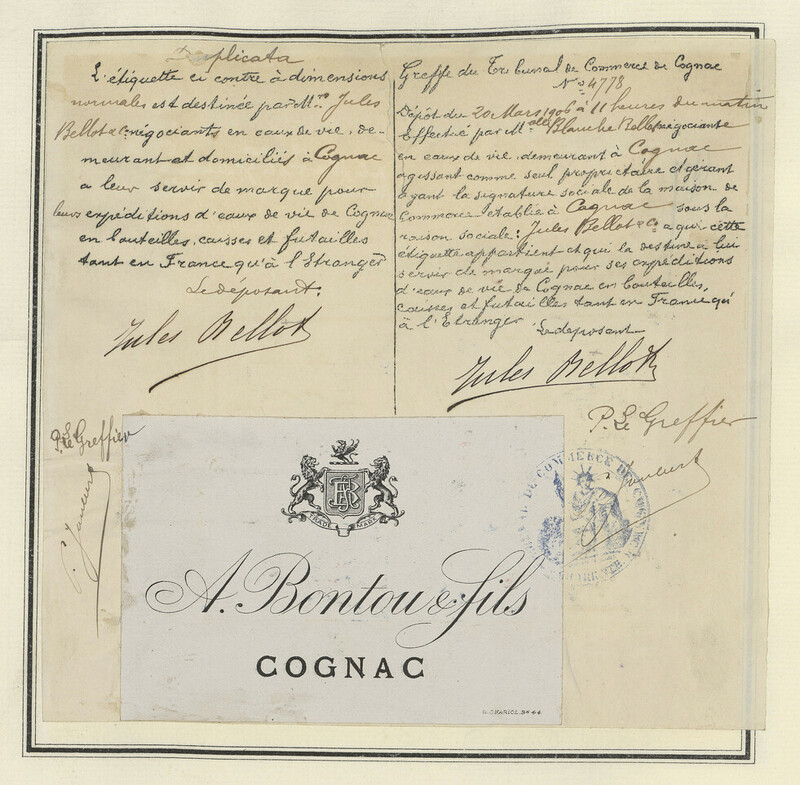 Duplicata
L'étiquette ci contre à dimensions
normales est destinée par M.rs Jules
Bellot & Co négociants en eaux de vie, de-
meurant et domiciliés à Cognac
a leur servir de marque pour
leurs expéditions d'eaux de vie de Cognac
en bouteilles, caisses et futailles
tant en France qu'à l'Etranger
Le déposant.
Jules Bellot
P. Le Greffier
Greffe du Tribunal de Commerce de Cognac
No 4778
Dépôt du 20 Mars 1906 à 11 heures du matin
Effectué par Melle Blanche Bellot négociante
en eaux de vie, demeurant à Cognac
agissant comme seul propriétaire et gérant
ayant la signature sociale de la maison de
Commerce établie à Cognac sous la
raison sociale: Jules Bellot & Co a qui cette
étiquette appartient et qui la destine a lui
servir de marque pour ses expéditions
d'eaux de vie de Cognac en bouteilles,
caisses et futailles tant en France qu'
à l'Etranger
Le déposant
Jules Bellot
P. Le Greffier
TRADE MARK
A. Bontou & fils
COGNAC
DE COMMERCE DE COGNAC